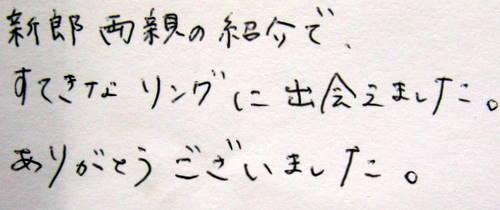 新郎両親の紹介で、
すてきなリングに出会えました。
ありがとうございました。